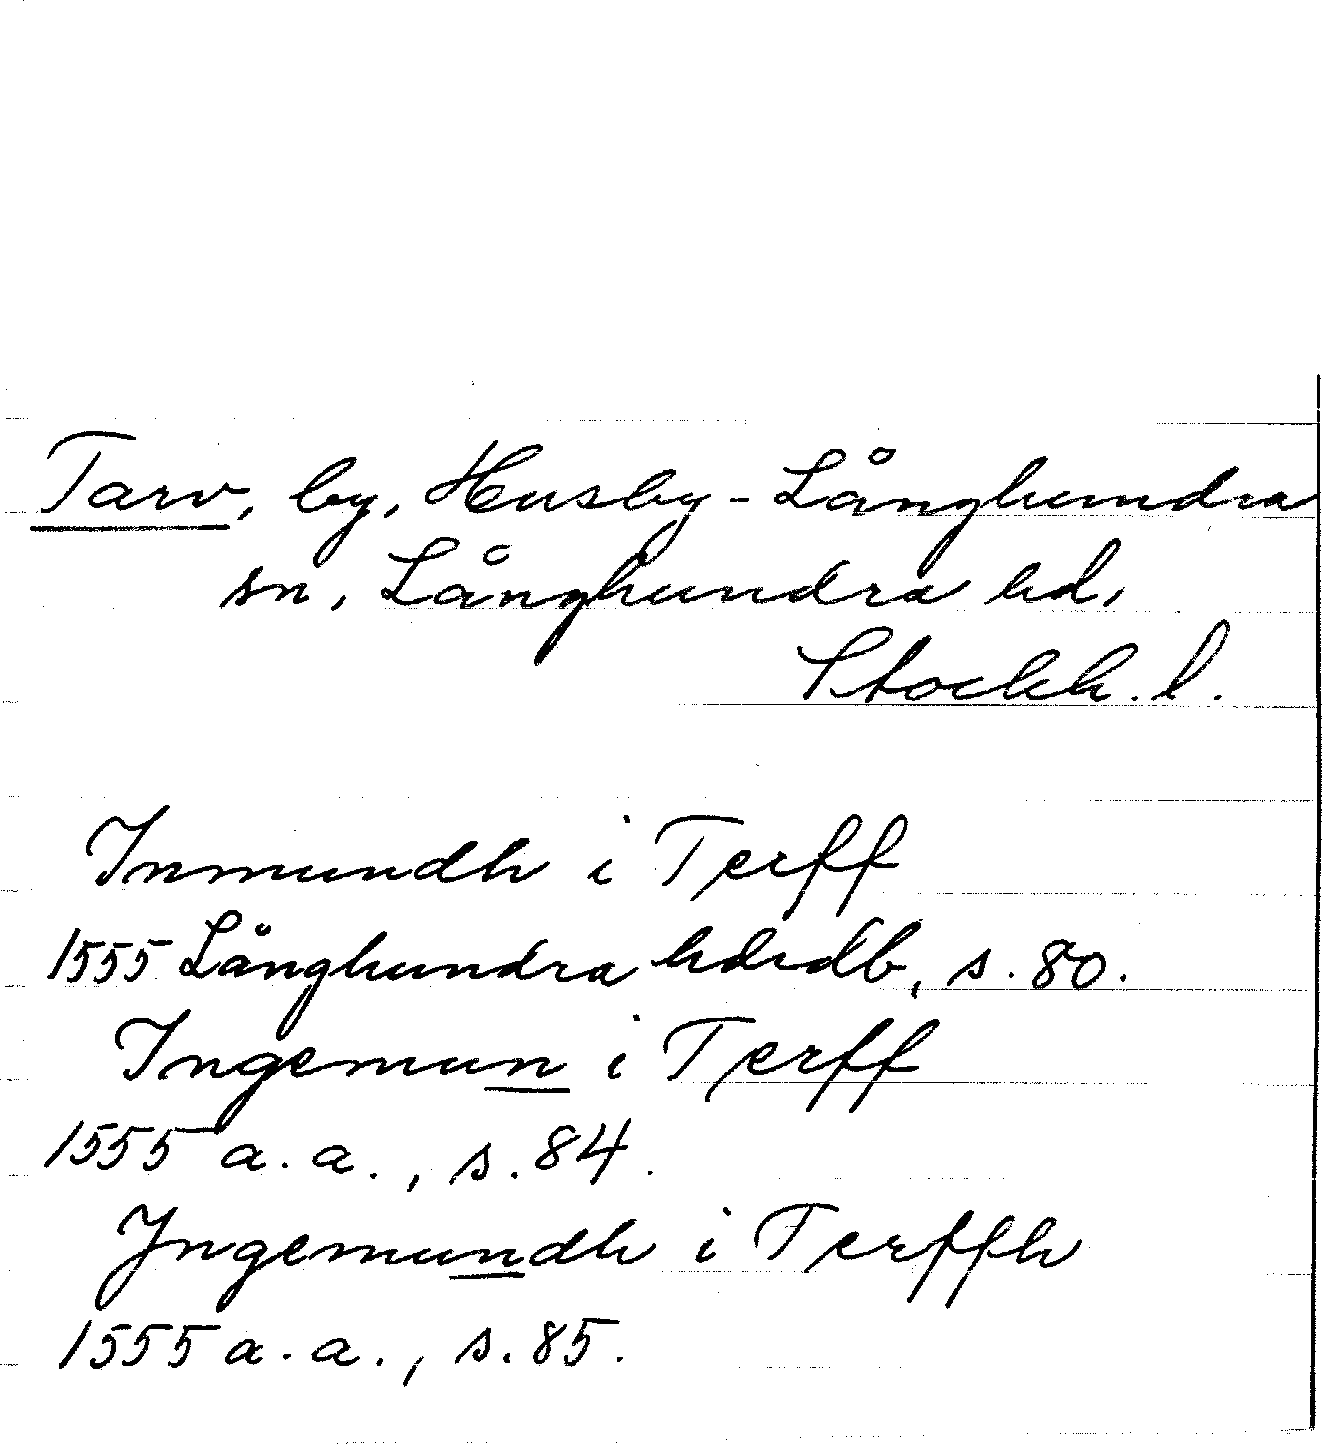 Tarv, by, Husby-Långhundra
sn, Långhundra hd,
Stockh. l.
Inmundh i Terff
1555 Långhundra hdrdb, s. 80.
Ingemun i Terff
1555 a. a., s. 84.
Jngemundh i Terffh
1555 a. a., s. 85.